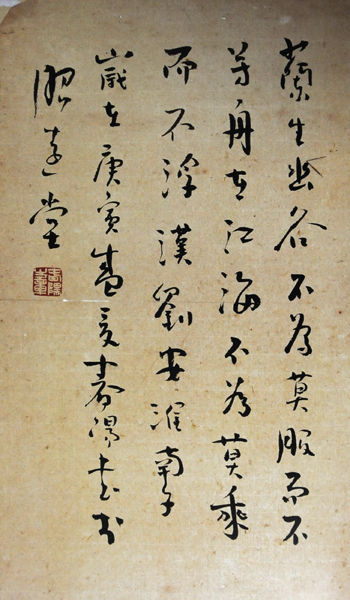 蘭生幽谷不為莫服而不
芳舟在江海不為莫乘
而不浮漢劉安淮南子
歲在庚寅夏書於
堂